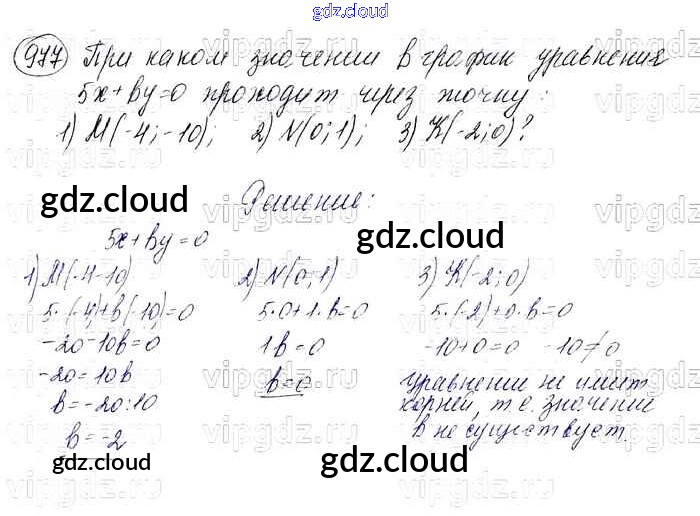 gdz.cloud
977 При каком значении в график уравнения
5х+ву=0 проходит через точку:
1) М(-4;-10); 2) N(0;1); 3) К(-2;0)?
Решение:
gdz.cloud
gdz.cloud
5х+ву=0
1) М(-4-10)
5·(-4)+в(-10)=0
-20-10в=0
-20=10в
в=-20:10
в=-2
2) N(0;1)
5·0+1·в=0
1в=0
в=0
3) К(-2;0)
5·(-2)+0·в=0
-10+0=0 -10≠0
уравнение не имеет
корней, т.е. значений
в не существует.
gdz.cloud
gdz.cloud
gdz.cloud